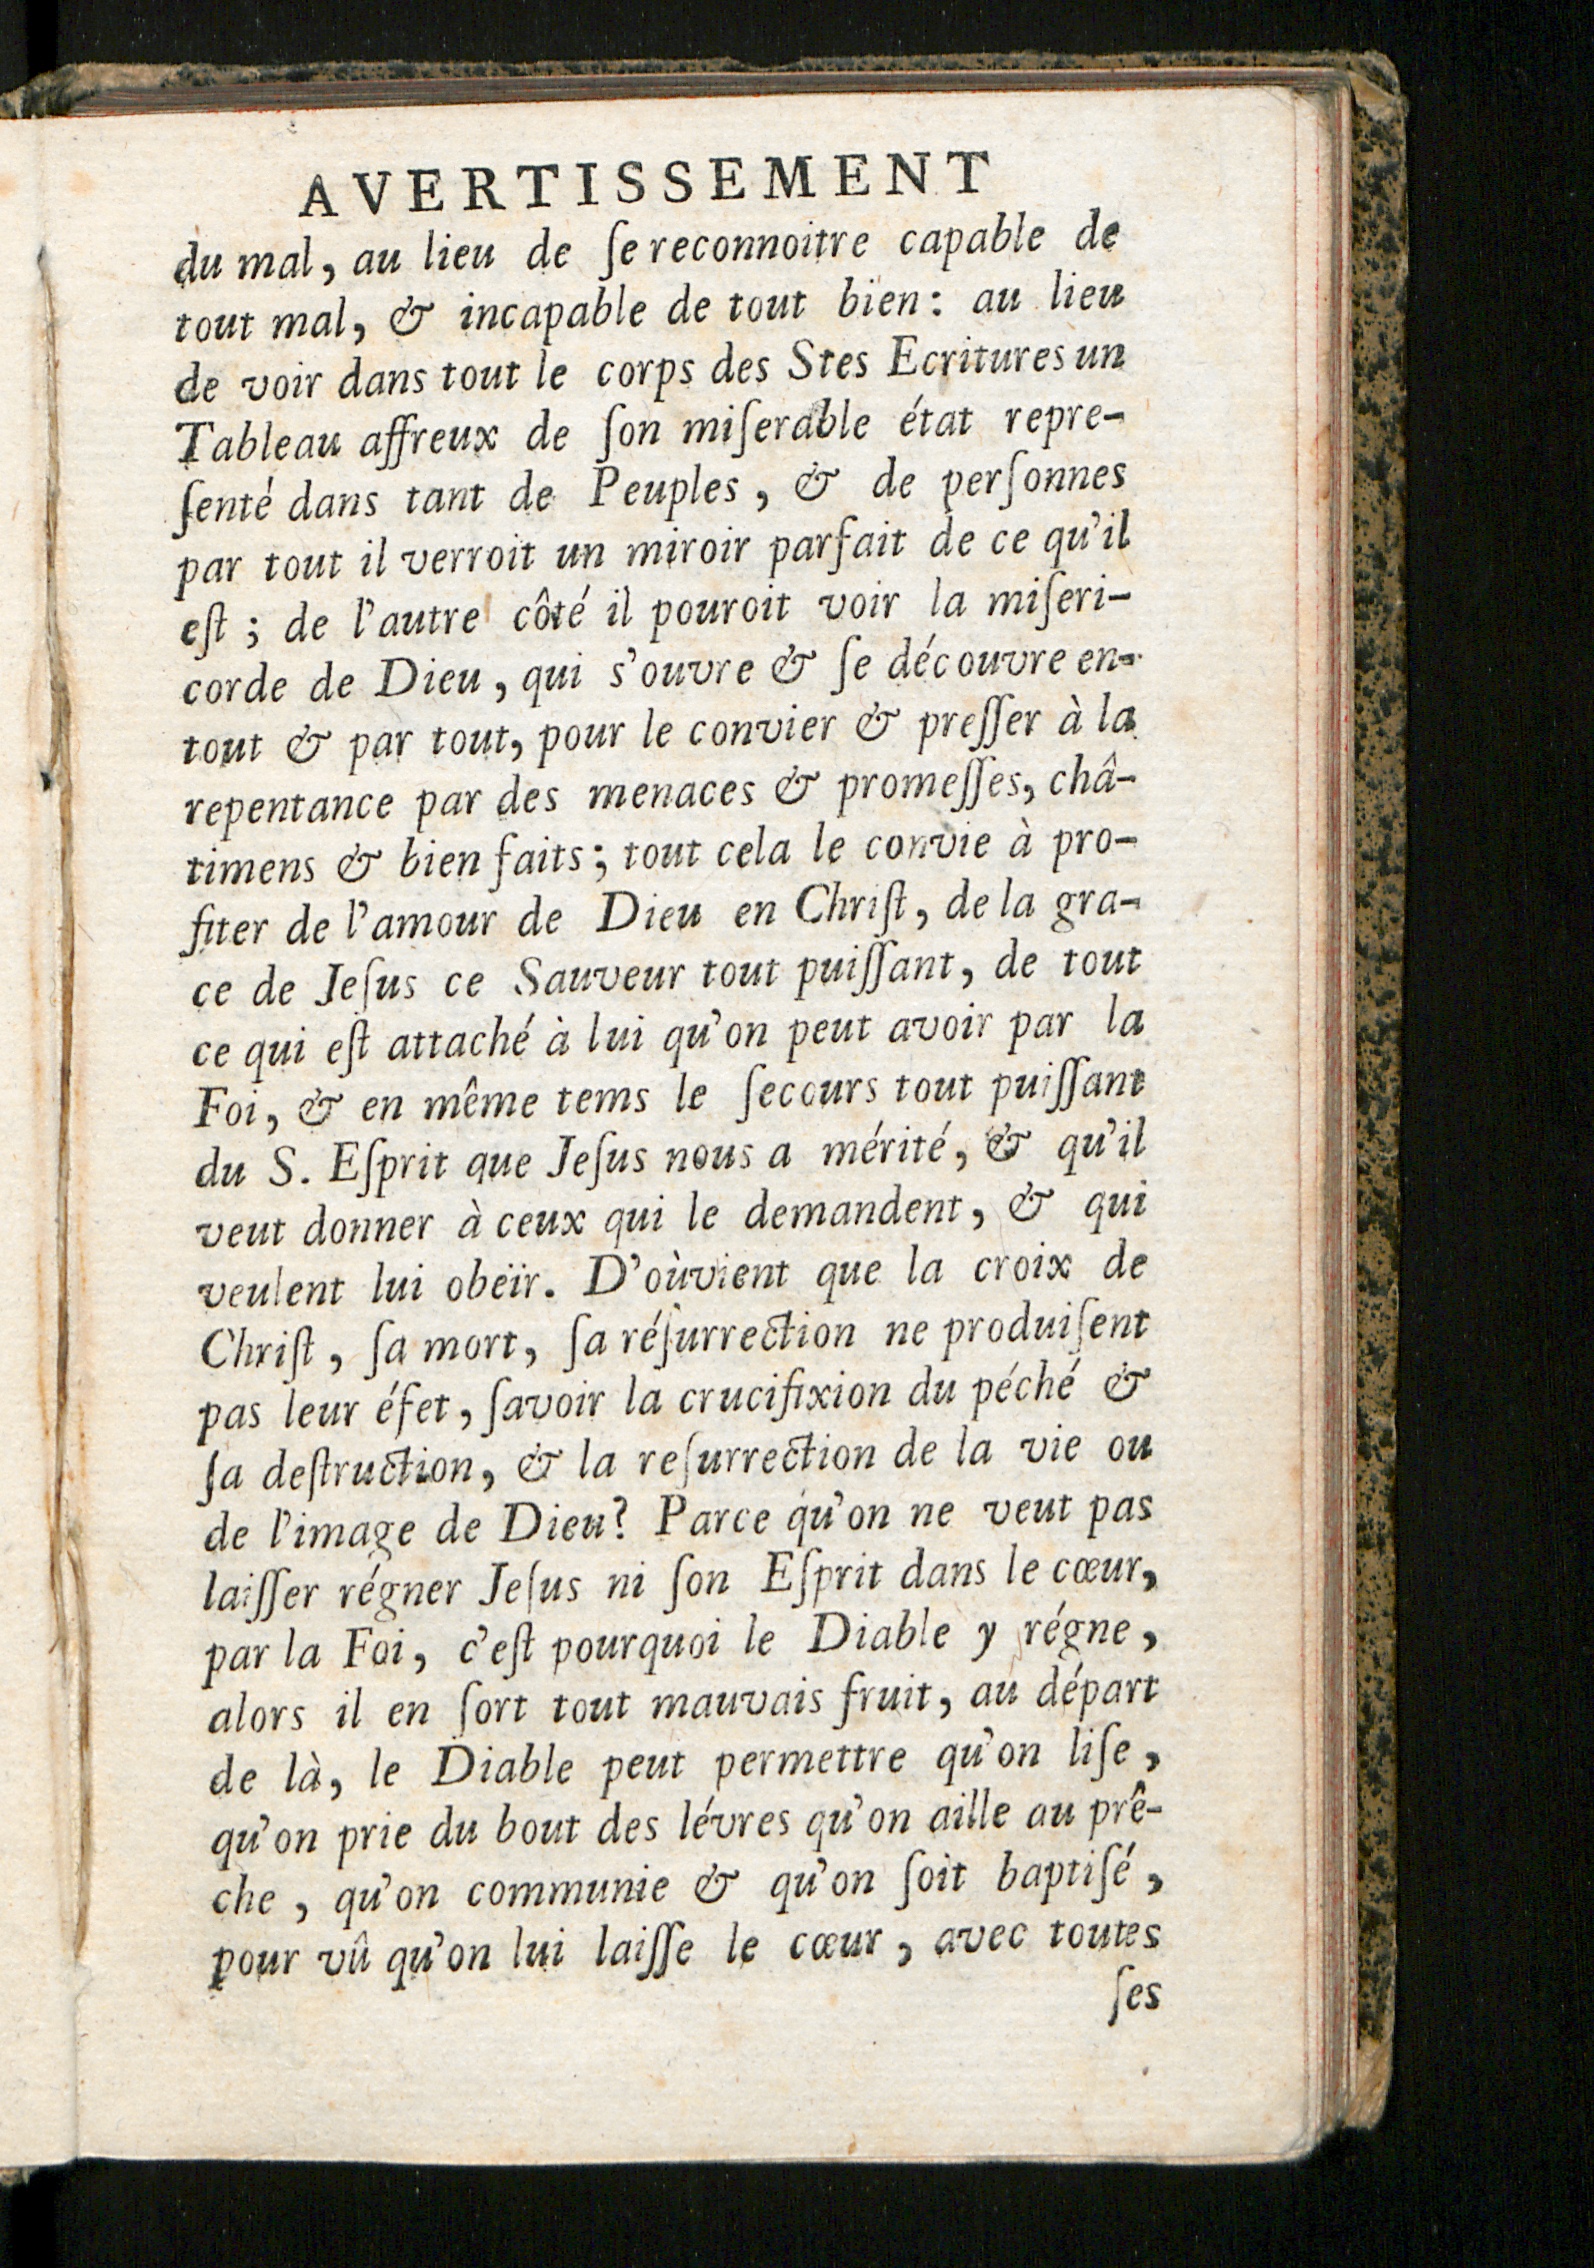 AVERTISSEMENT
du mal, au lieu de ſe reconnoitre capable de
tout mal, & incapable de tout bien : au lieu
de voir dans tout le corps des Stes Ecritures un
Tableau affreux de ſon miſerable état repre-
ſenté dans tant de Peuples, & de perſonnes
par tout il verroit un miroir parfait de ce qu'il
eſt ; de l'autre côté il pouroit voir la miſeri-
corde de Dieu, qui s'ouvre & ſe découvre en-
tout & par tout, pour le convier & preſſer à la
repentance par des menaces & promeſſes, châ-
timens & bien faits ; tout cela le convie à pro-
fiter de l'amour de Dieu en Chriſt, de la gra-
ce de Jeſus ce Sauveur tout puiſſant, de tout
ce qui eſt attaché à lui qu'on peut avoir par la
Foi, & en même tems le ſecours tout puiſſant
du S. Eſprit que Jeſus nous a mérité, & qu'il
veut donner à ceux qui le demandent, & qui
veulent lui obeïr. D'oùvient que la croix de
Chriſt, ſa mort, ſa réſurrection ne produiſent
pas leur éfet, ſavoir la crucifixion du péché &
ſa deſtruction, & la reſurrection de la vie ou
de l'image de Dieu? Parce qu'on ne veut pas
laiſſer régner Jeſus ni ſon Eſprit dans le cœur,
par la Foi, c'eſt pourquoi le Diable y régne,
alors il en ſort tout mauvais fruit, au départ
de là, le Diable peut permettre qu'on liſe,
qu'on prie du bout des lévres qu'on aille au prê-
che, qu'on communie & qu'on ſoit baptiſé,
pour vû qu'on lui laiſſe le cœur, avec toutes
ſes